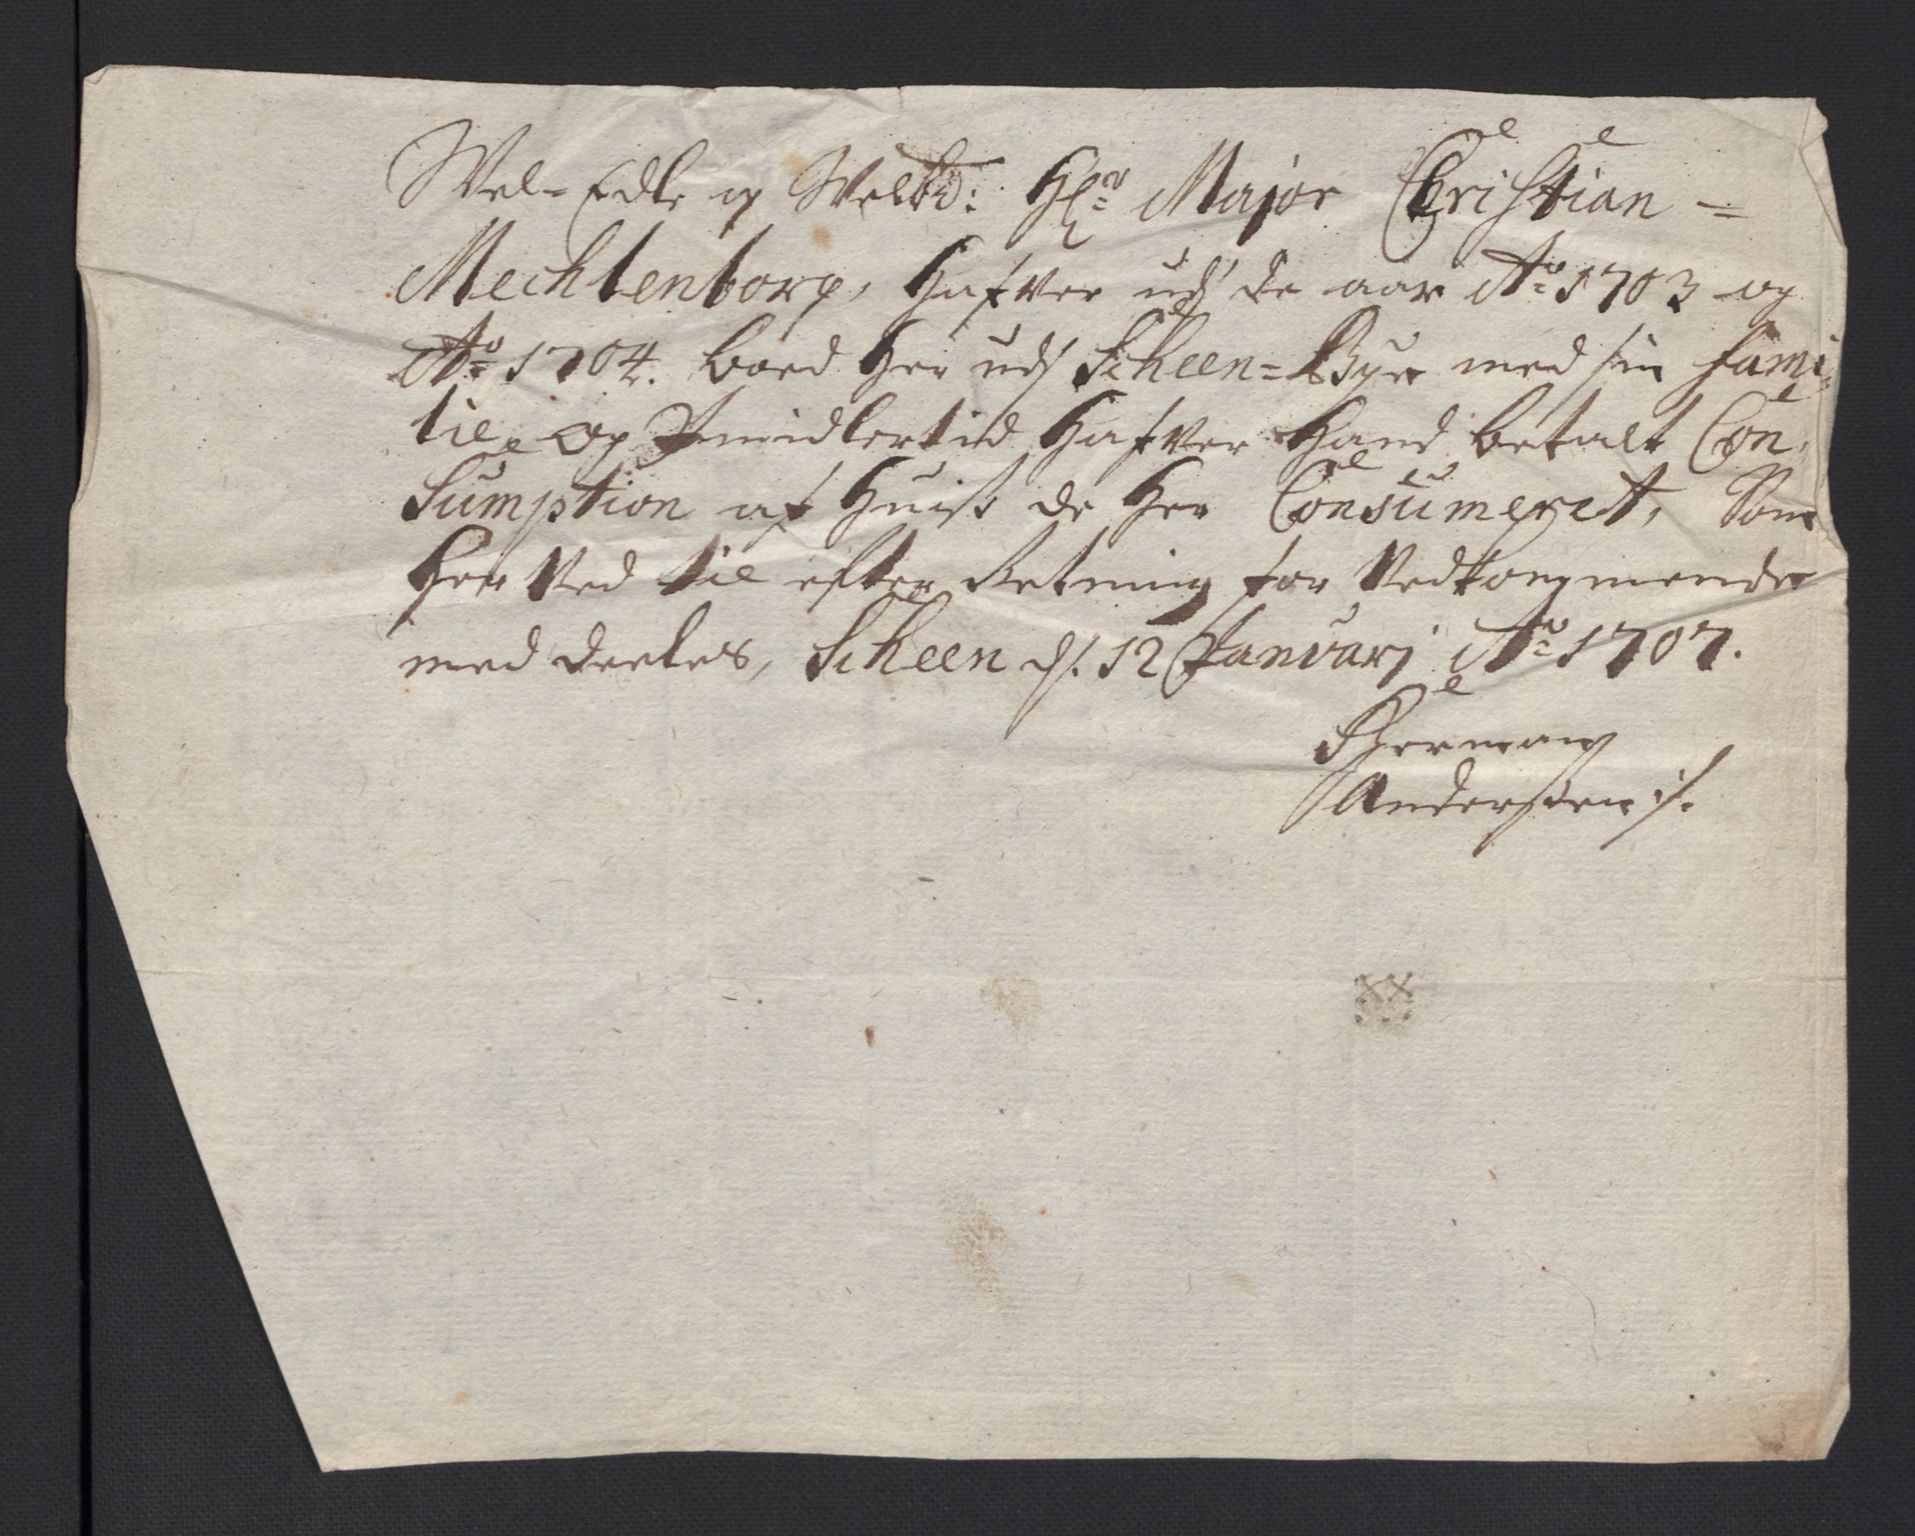 Wel-Edle og Welbd: Hr: Major Christian =
Mechlenborg, Hafver udj de aar Ao 1703 og
Ao 1704. boed her udj Scheen=Bye med sin Fami-
lie, og Imidlertid Hafver Hand betalt Con,
Sumption af Huist de her Consumerit, Som
her Ved til efter Retning for Vedkommende
med deeles, Scheen dj. 12 Januarj Ao 1707.
Herman
Anderssen